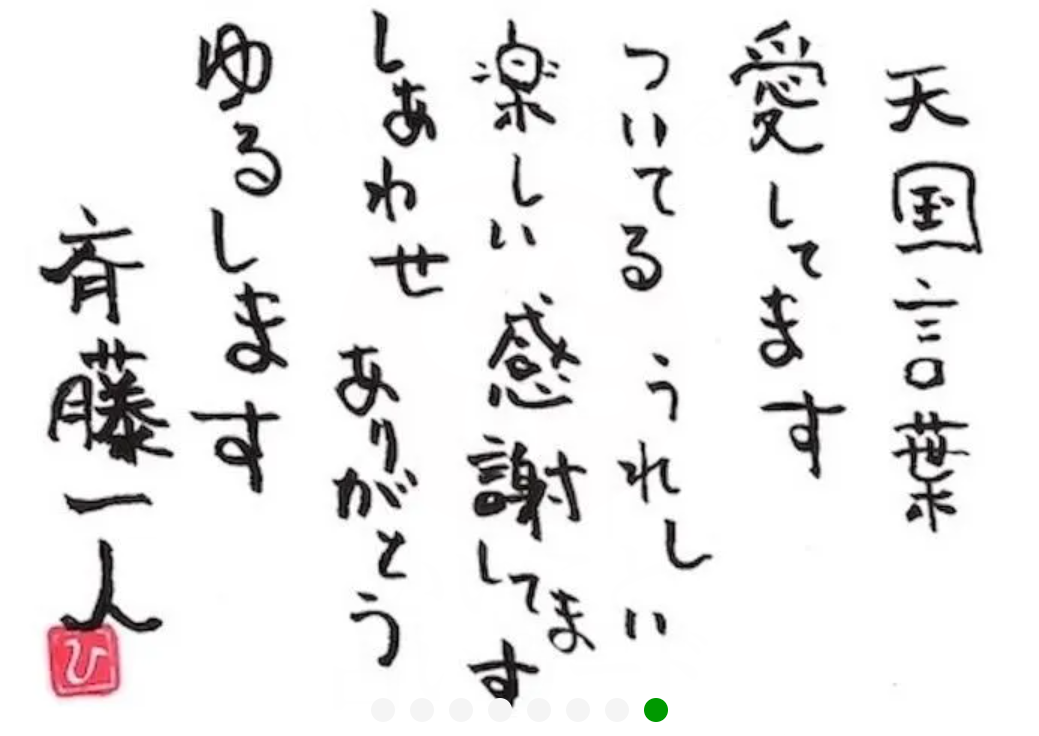 天国言葉
愛してます
ついてる うれしい
楽しい 感謝してます
しあわせ ありがとう
ゆるします
斉藤一人
ひ